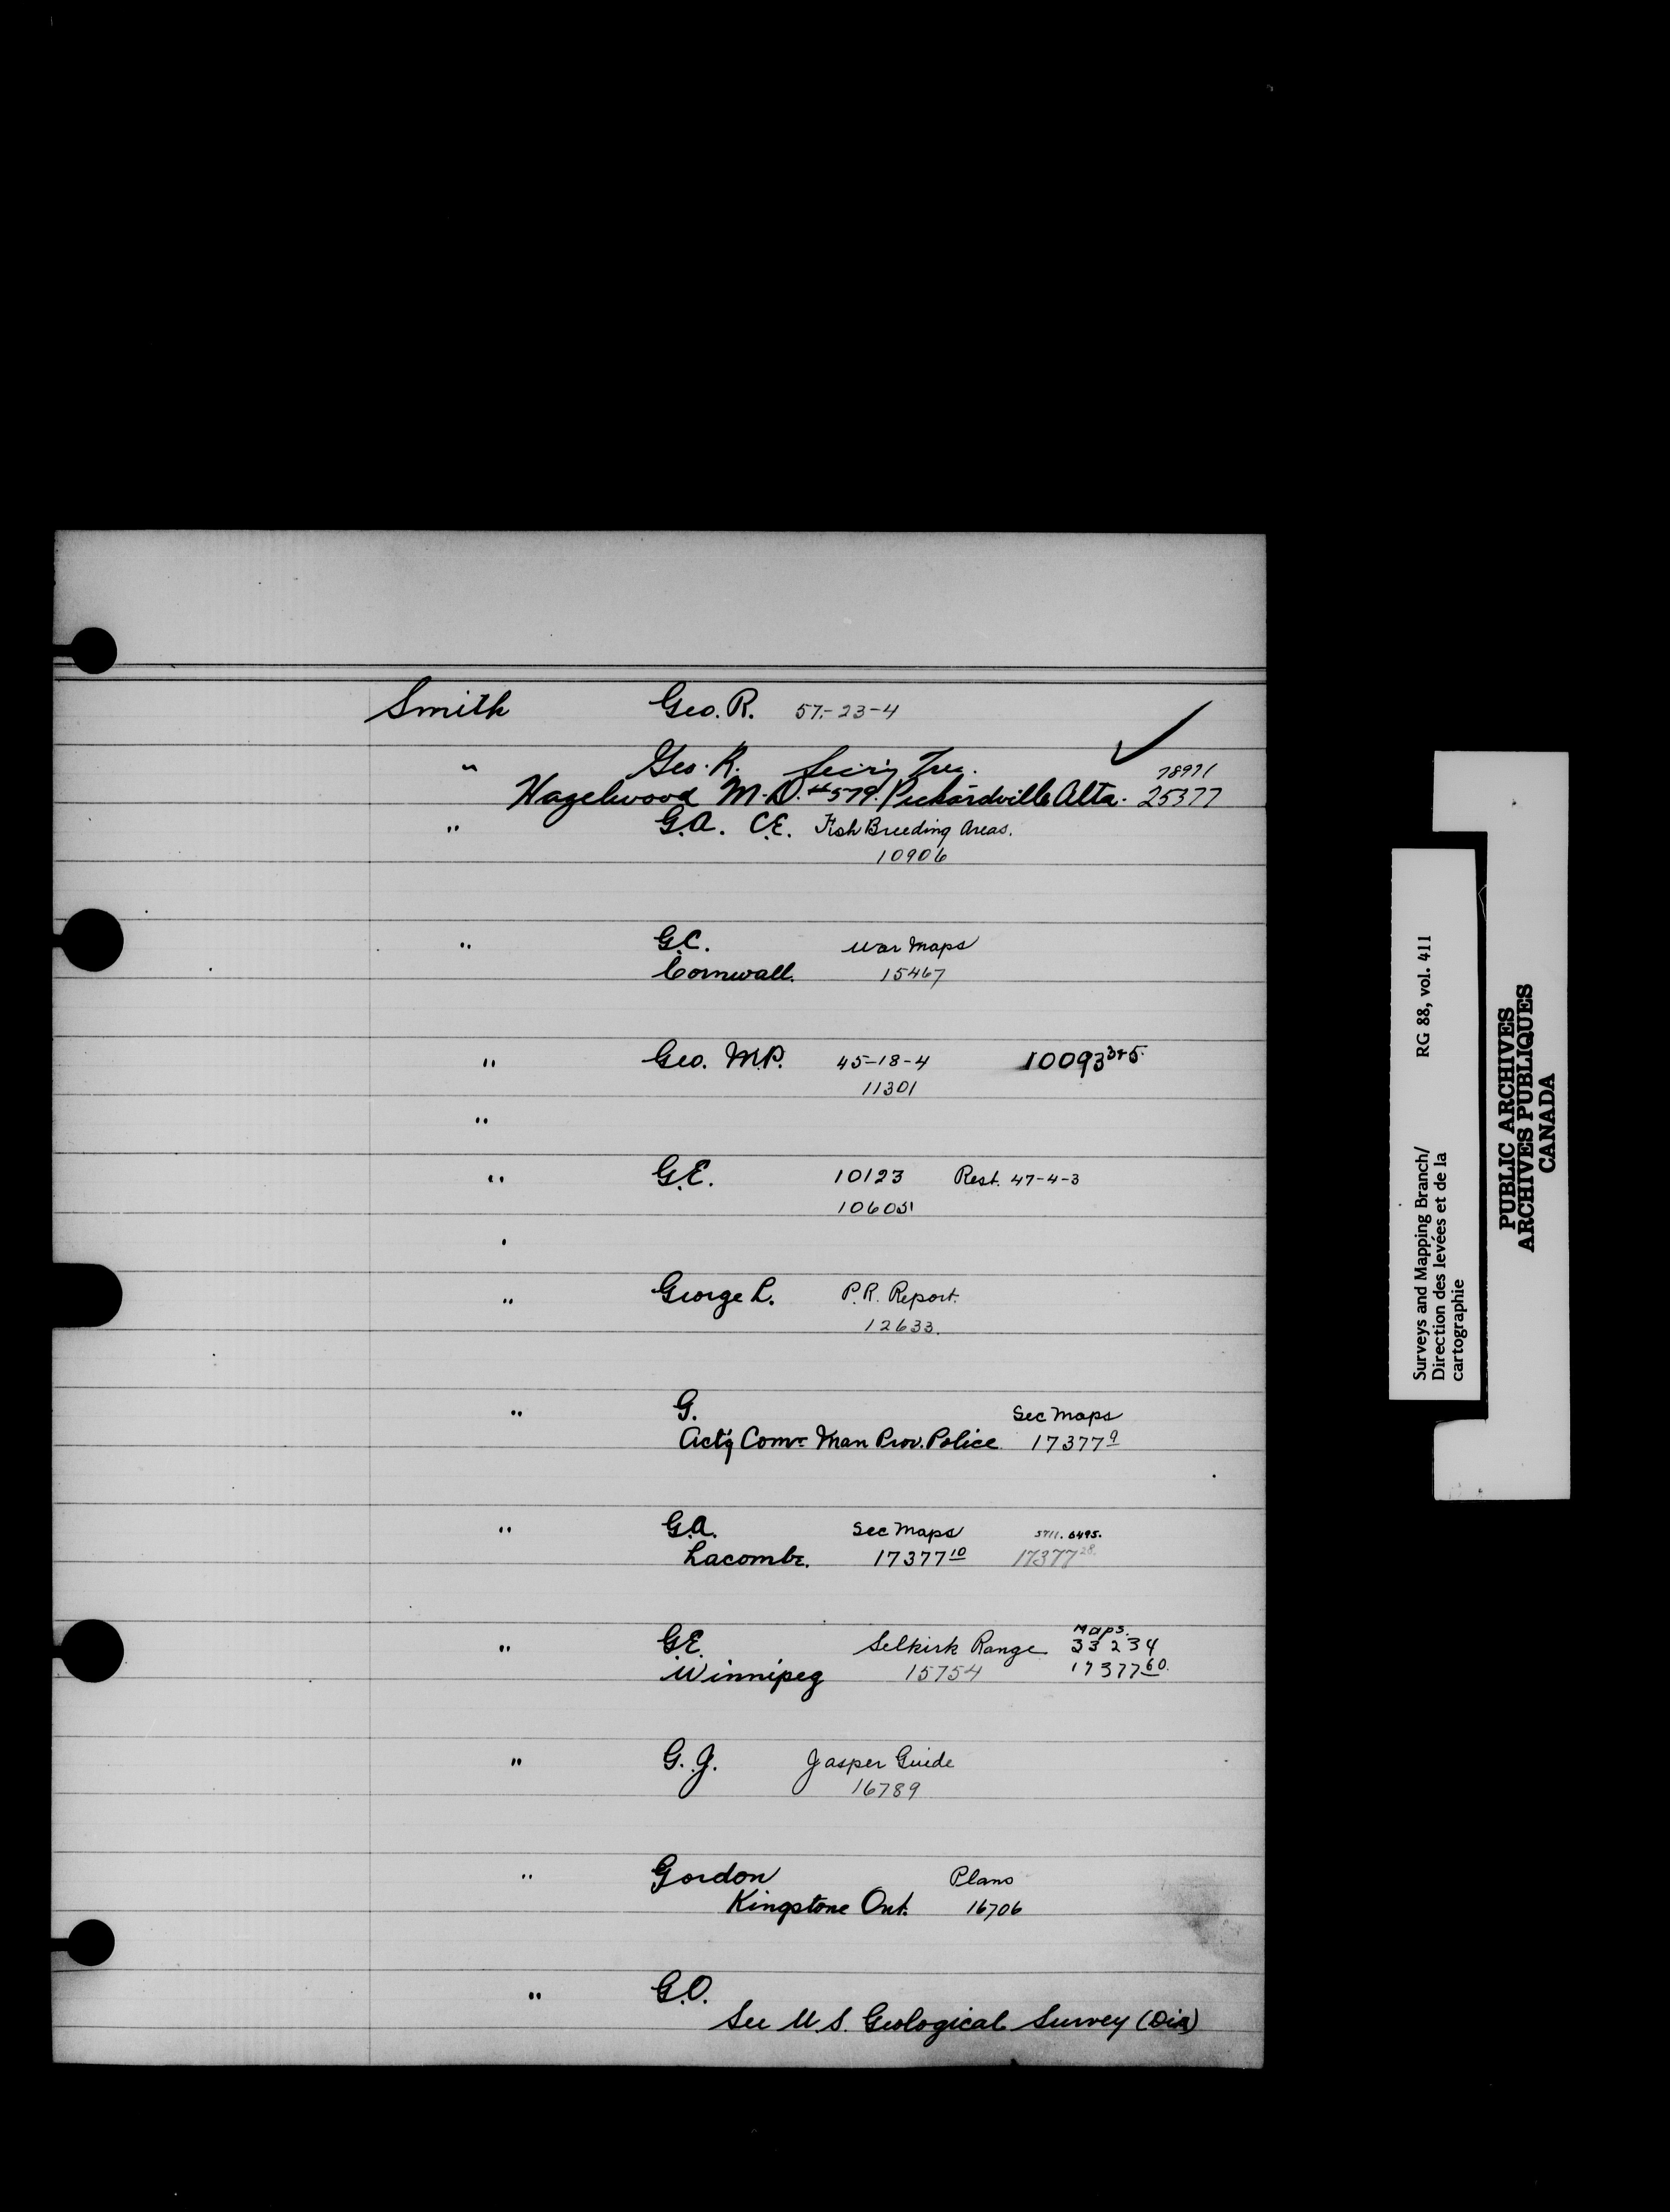 Smith Geo. R. 57-23-4
" Geo. R. Sec'y Tres. 78971
Hazelwood M.D. #579. Pickardville Alta. 25377
" G.A. C.E. Fish Breeding Areas.
10906
" G.C. War Maps
Cornwall. 15467
" Geo. M.P. 45-18-4 10093 3+5.
11301
"
" G.E. 10123 Rest. 47-4-3
10605
" George L. P.R. Report.
12633.
" G. Sec Maps
Act'g Comr. Man Prov. Police 17377 9
" G.A. Sec Maps 5711. 6495.
Lacombe. 17377 10 17377 28.
" G.E. Selkirk Range Maps. 33234
Winnipeg 15754 17377 60.
" G.J. Jasper Guide
16789
" Gordon Plans
Kingstone Ont. 16706
" G.O.
See U.S. Geological Survey (Dir)
Surveys and Mapping Branch/ RG 88, vol. 411
Direction des levées et de la
cartographie
PUBLIC ARCHIVES
ARCHIVES PUBLIQUES
CANADA